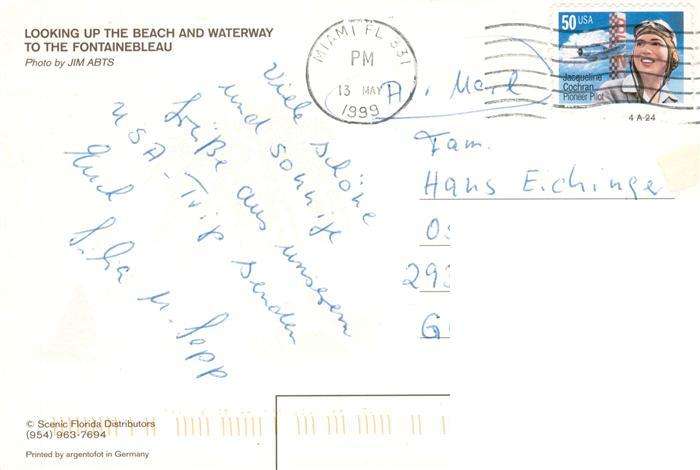 LOOKING UP THE BEACH AND WATERWAY
TO THE FONTAINEBLEAU
Photo by JIM ABTS
MIAMI FL 331
PM
13 MAY
1999
50 USA
Jacqueline
Cochran
Pioneer Pilot
4 A-24
Viele schöne
und sonnige
Grüße aus unserem
USA-Trip senden
Euch
u. Sepp
Fam.
Hans Eichinger
293
© Scenic Florida Distributors
(954) 963-7694
Printed by argentofot in Germany